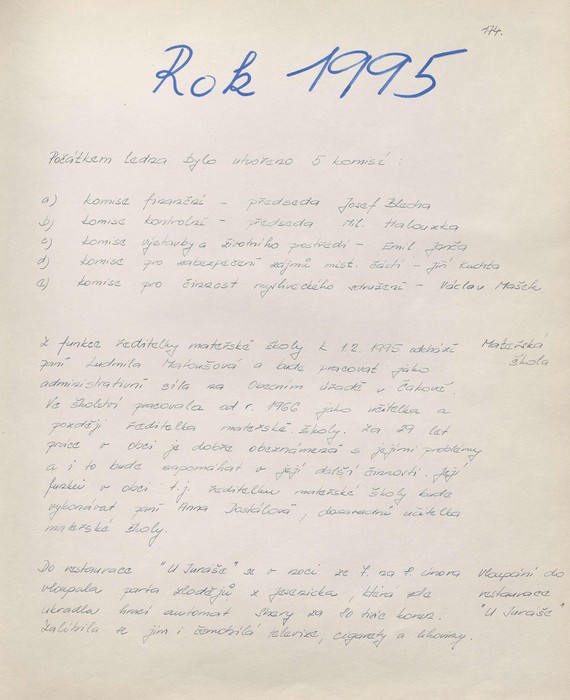 174.
Rok 1995
Počátkem ledna bylo utvořeno 5 komisí :
a) komise finanční - předseda Josef Blecha
b) komise kontrolní - předseda Mil. Halouzka
c) komise výstavby a životního prostředí - Emil Janča
d) komise pro zabezpečení zájmů míst. části - Jiří Kuchta
e) komise pro činnost mysliveckého sdružení - Václav Mašek
Z funkce ředitelky mateřské školy k 1.2. 1995 odchází
Mateřská
škola
paní Ludmila Matoušová a bude pracovat jako
administrativní síla na Obecním úřadě v
Ve školství pracovala od r. 1966 jako učitelka a
později ředitelka mateřské školy. Za 29 let
práce v obci je dobře obeznámená s jejími problémy
a i to bude napomáhat v její další činnosti. Její
funkci v obci t.j. ředitelku mateřské školy bude
vykonávat paní Anna Dostálová, dosavadní učitelka
mateřské školy.
Do restaurace "U Juráše" se v noci ze 7. na 8. února
vloupala parta zlodějů z Jesenicka, která zde
ukradla hrací automat za 80 tisíc korun.
Zalíbila se jim i černobílá televize, cigarety a lihoviny.
Vloupání do
restaurace
"U Juráše"